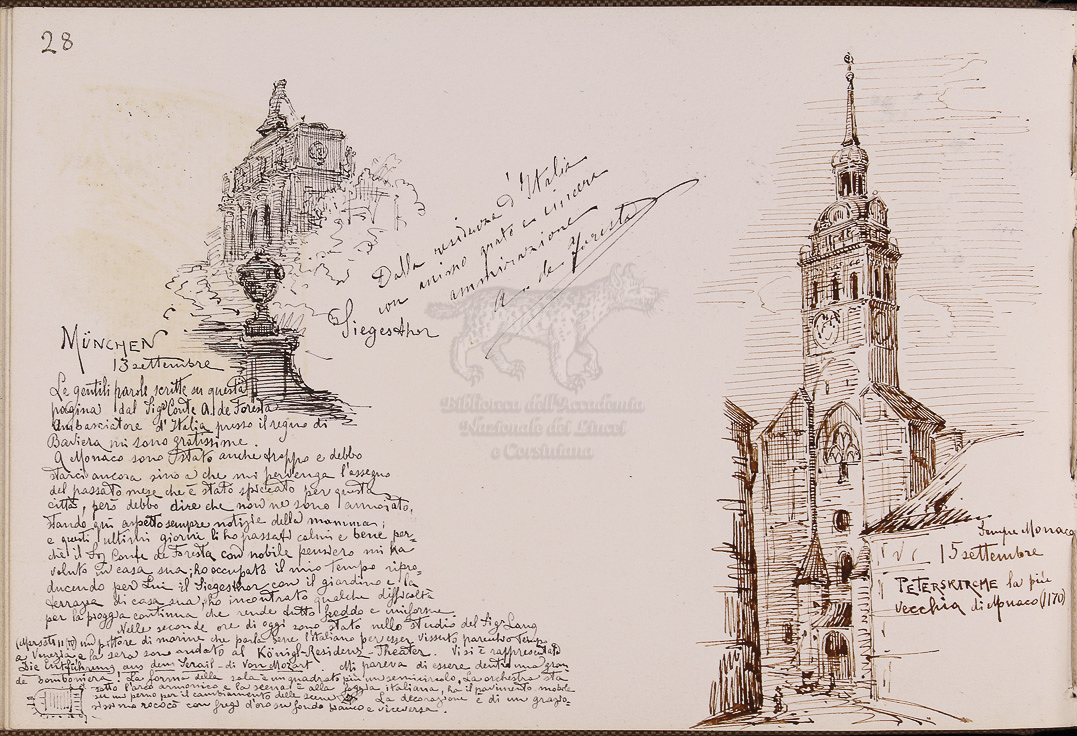 28
Dalla residenza d'Italia
con animo grato e sincera
ammirazione
A. de Foresta
Siegesthor
MÜNCHEN
13 settembre
Le gentili parole scritte su questa
pagina dal Sigr Conte A. de Foresta
Ambasciatore d'Italia presso il regno di
Baviera mi sono gratissime.
A Monaco sono stato anche troppo e debbo
starci ancora sino a che mi pervenga l'assegno
del passato mese che è stato spiccato per questa
città, però debbo dire che non ne sono annoiato,
stando qui aspetto sempre notizie della mamma;
e questi ultimi giorni li ho passati calmi e bene per-
chè il Sig Conte de Foresta con nobile pensiero mi ha
voluto in casa sua; ho occupato il mio tempo ripro-
ducendo per Lui il Siegesthor con il giardino e la
terrazza di casa sua, ho incontrato qualche difficoltà
per la pioggia continua che rende tutto freddo e uniforme.
Nelle seconde ore di oggi sono stato nello studio del Sigr Lang
un pittore di marine che parla bene l'italiano per esser vissuto parecchio tempo
a Venezia e la sera sono andato al Königl-Residenz-Theater. Vi si è rappresentato
Die Entführung aus dem Serail - di Von Mozart. Mi pareva di essere dentro una gran
de bomboniera! La forma della sala è un quadrato più un semicircolo. La orchestra sta
sotto l'arco armonico e la scena è alla foggia italiana, ha il pavimento mobile
su un perno per il cambiamento delle scene. La decorazione è di un grazio-
sissimo rococò con fregi d'oro su fondo bianco e viceversa.
Sempre Monaco
15 settembre
PETERSKIRCHE la più
vecchia di Monaco (1170)
Biblioteca dell'Accademia
Nazionale dei Lincei
e Corsiniana